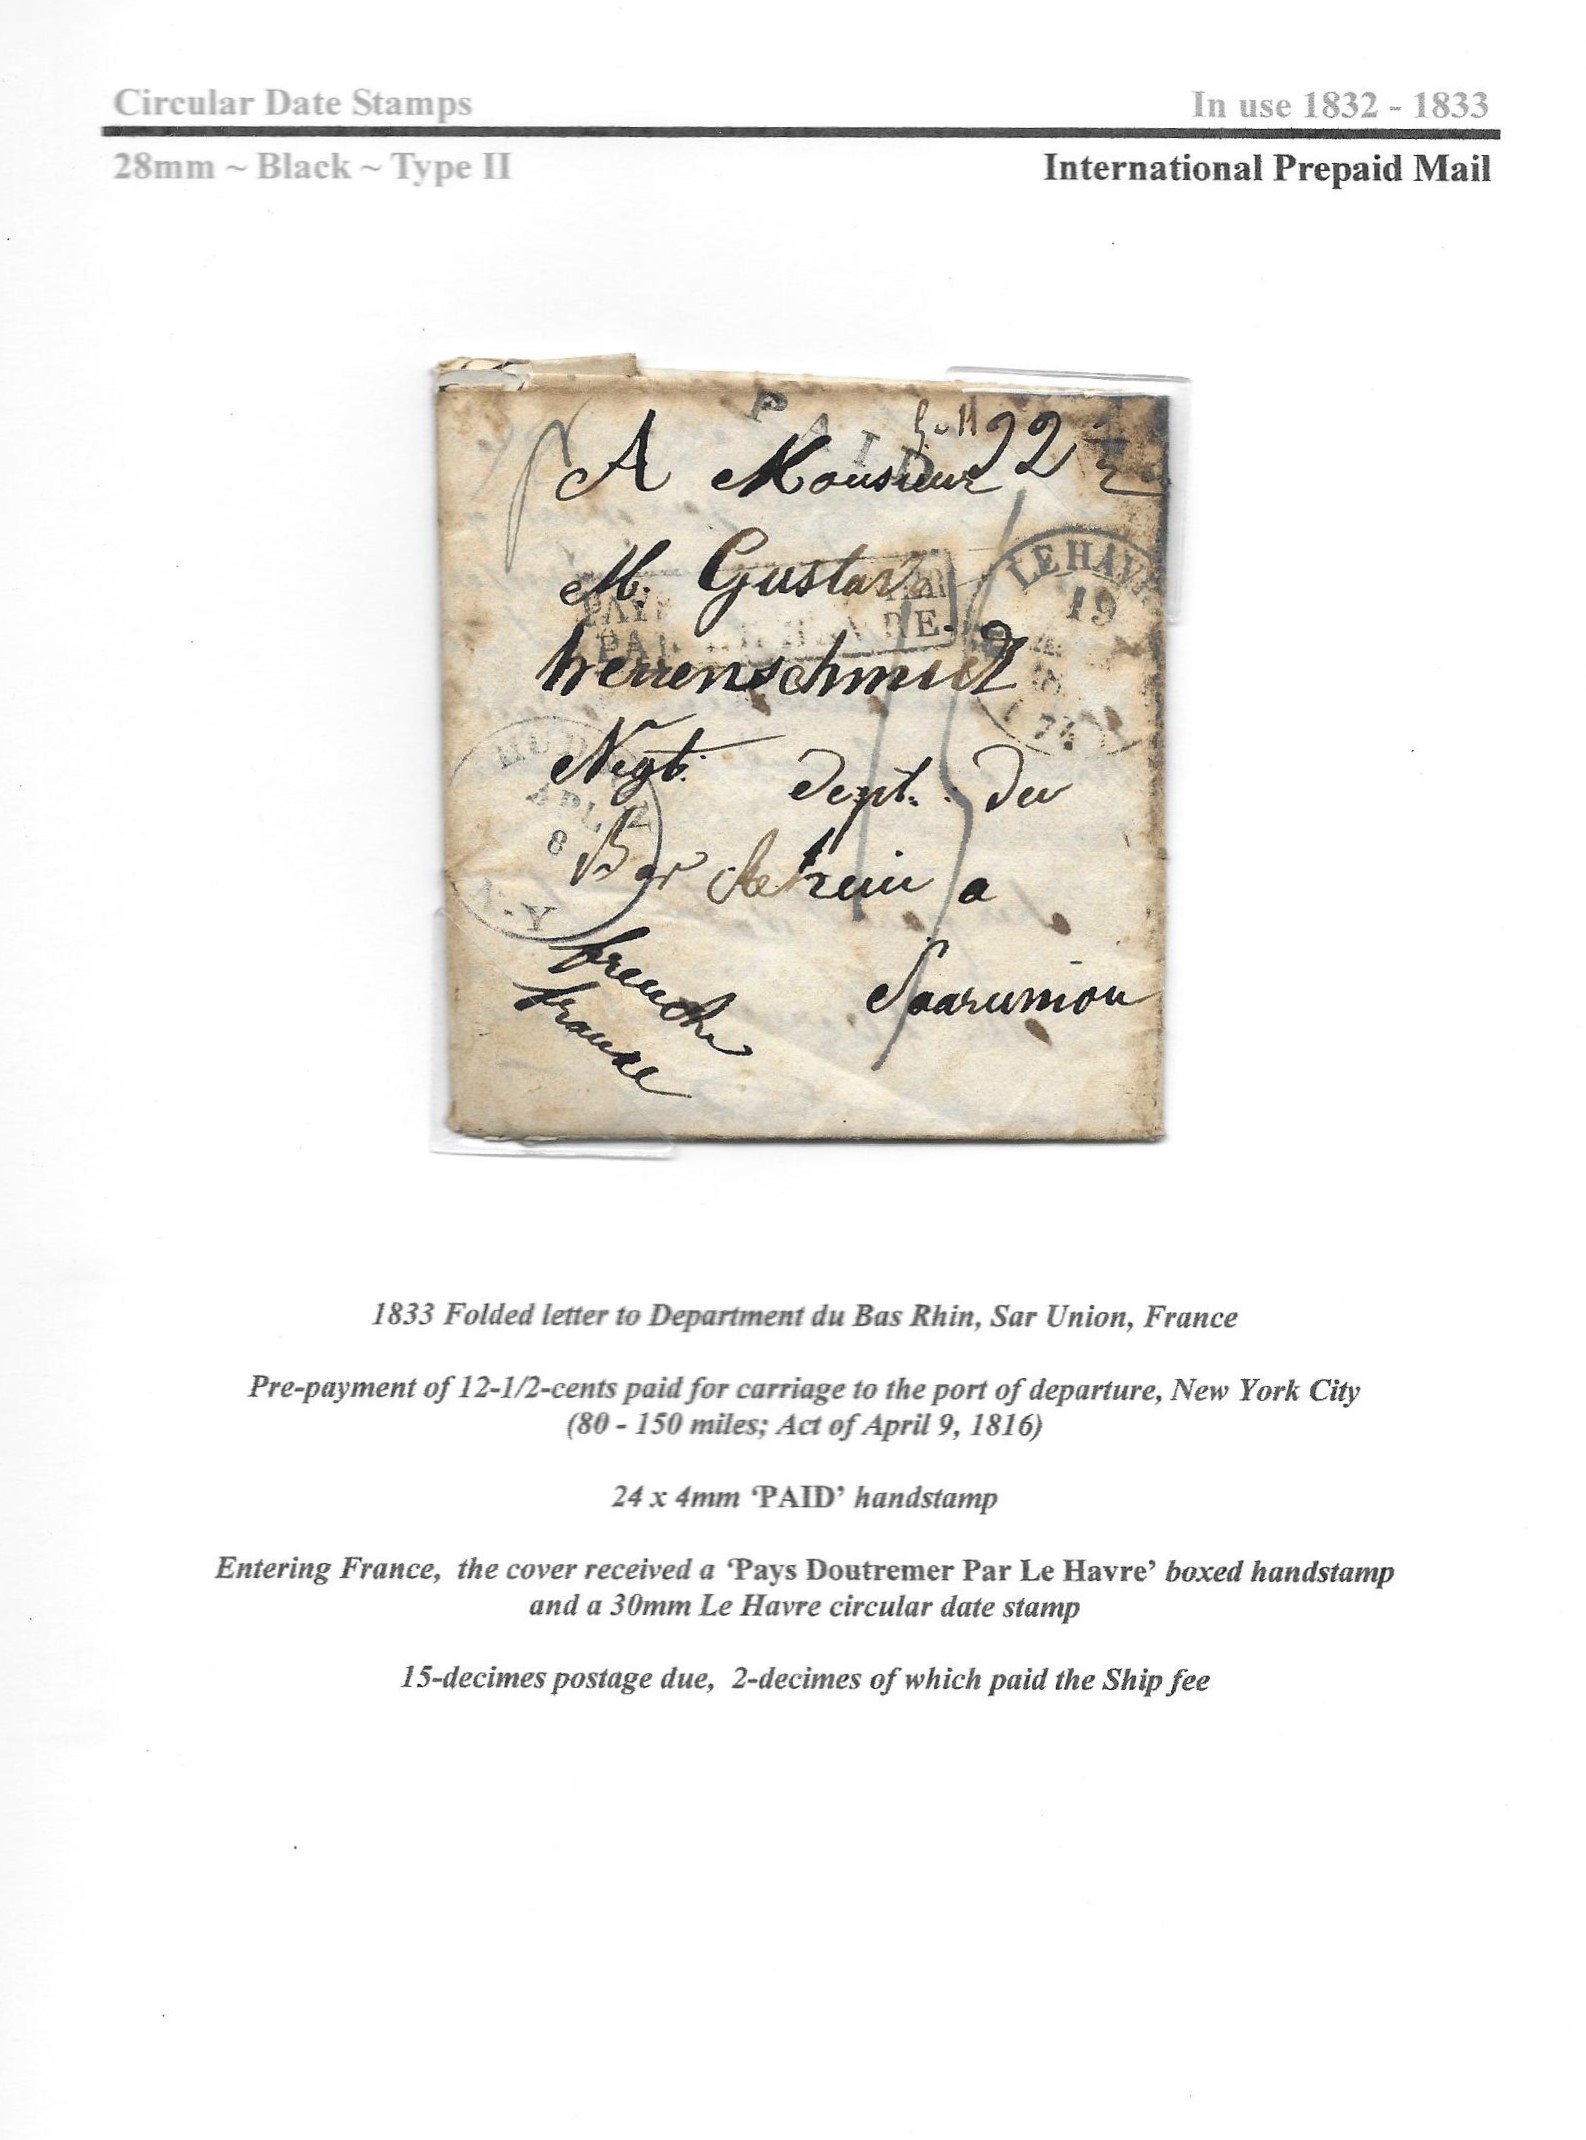 Circular Date Stamps
In use 1832 - 1833
28mm ~ Black ~ Type II
International Prepaid Mail
PAID
22
A Monsieur
LE HAV
19
M. Gustav
PAYS
PAR
RE.
herrenschmidt
HUDSON
APL
8
N.Y
Negt. dept. du
Bas Rhein a
Saarunion
french
france
1833 Folded letter to Department du Bas Rhin, Sar Union, France
Pre-payment of 12-1/2-cents paid for carriage to the port of departure, New York City
(80 - 150 miles; Act of April 9, 1816)
24 x 4mm ‘PAID’ handstamp
Entering France, the cover received a ‘Pays Doutremer Par Le Havre’ boxed handstamp
and a 30mm Le Havre circular date stamp
15-decimes postage due, 2-decimes of which paid the Ship fee